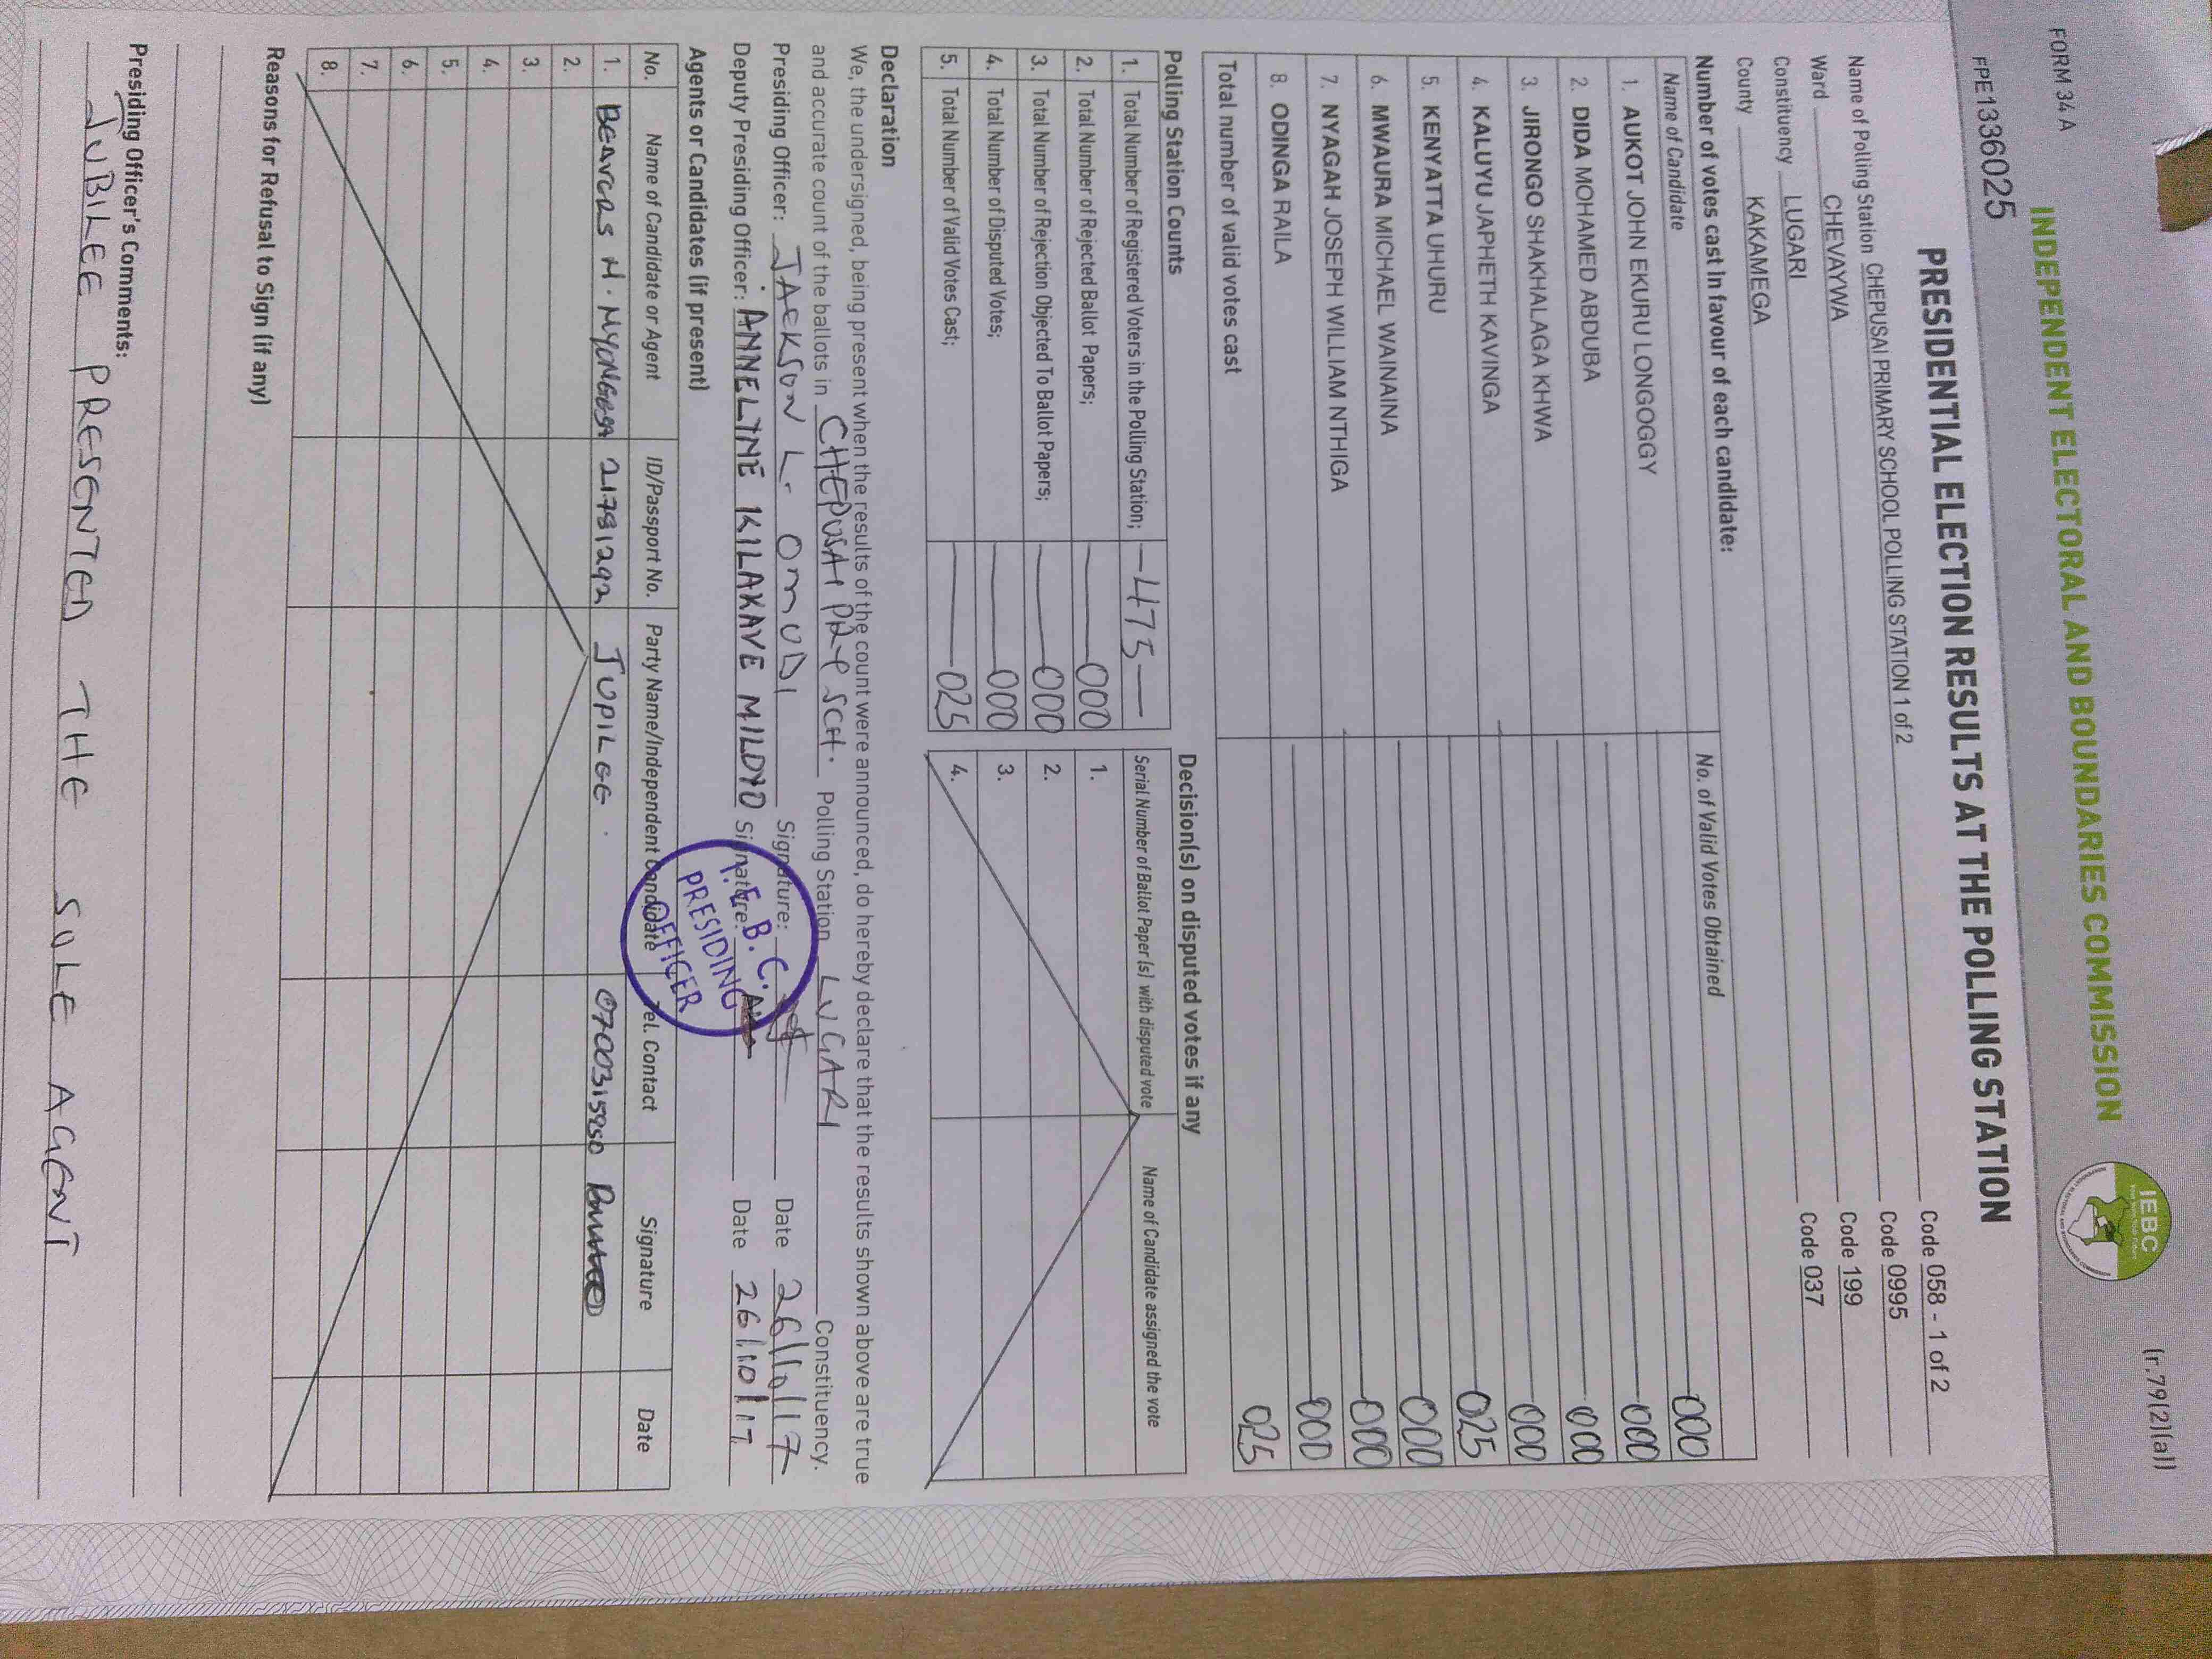 FORM 34 A
(r.79(2)(a))
INDEPENDENT ELECTORAL AND BOUNDARIES COMMISSION
IEBC
FPE1336025
PRESIDENTIAL ELECTION RESULTS AT THE POLLING STATION
Name of Polling Station CHEPUSAI PRIMARY SCHOOL POLLING STATION 1 of 2 Code 058 - 1 of 2
Ward CHEVAYWA Code 0995
Constituency LUGARI Code 199
County KAKAMEGA Code 037
Number of votes cast in favour of each candidate:
Name of Candidate No. of Valid Votes Obtained
1. AUKOT JOHN EKURU LONGOGGY 000
2. DIDA MOHAMED ABDUBA 000
3. JIRONGO SHAKHALAGA KHWA 000
4. KALUYU JAPHETH KAVINGA 000
5. KENYATTA UHURU 025
6. MWAURA MICHAEL WAINAINA 000
7. NYAGAH JOSEPH WILLIAM NTHIGA 000
8. ODINGA RAILA 000
Total number of valid votes cast 025
Polling Station Counts
1. Total Number of Registered Voters in the Polling Station; 475
2. Total Number of Rejected Ballot Papers; 000
3. Total Number of Rejection Objected To Ballot Papers; 000
4. Total Number of Disputed Votes; 000
5. Total Number of Valid Votes Cast; 025
Decision(s) on disputed votes if any
Serial Number of Ballot Paper(s) with disputed vote Name of Candidate assigned the vote
1.
2.
3.
4.
Declaration
We, the undersigned, being present when the results of the count were announced, do hereby declare that the results shown above are true
and accurate count of the ballots in CHEPUSAI PRY SCH. Polling Station LUGARI Constituency.
Presiding Officer: JACKSON L. OMUDI Signature: Date 26/10/17
Deputy Presiding Officer: ANNELYNE KILAKAVE MILDYD Signature: Date 26/10/17
I.E.B.C.
PRESIDING
OFFICER
Agents or Candidates (if present)
No. Name of Candidate or Agent ID/Passport No. Party Name/Independent Candidate Tel. Contact Signature Date
1. Beavcas M. 21781292 JUPILEE. 0700315950
2.
3.
4.
5.
6.
7.
8.
Reasons for Refusal to Sign (if any)
Presiding Officer's Comments:
JUBILEE PRESENTED THE SOLE AGENT